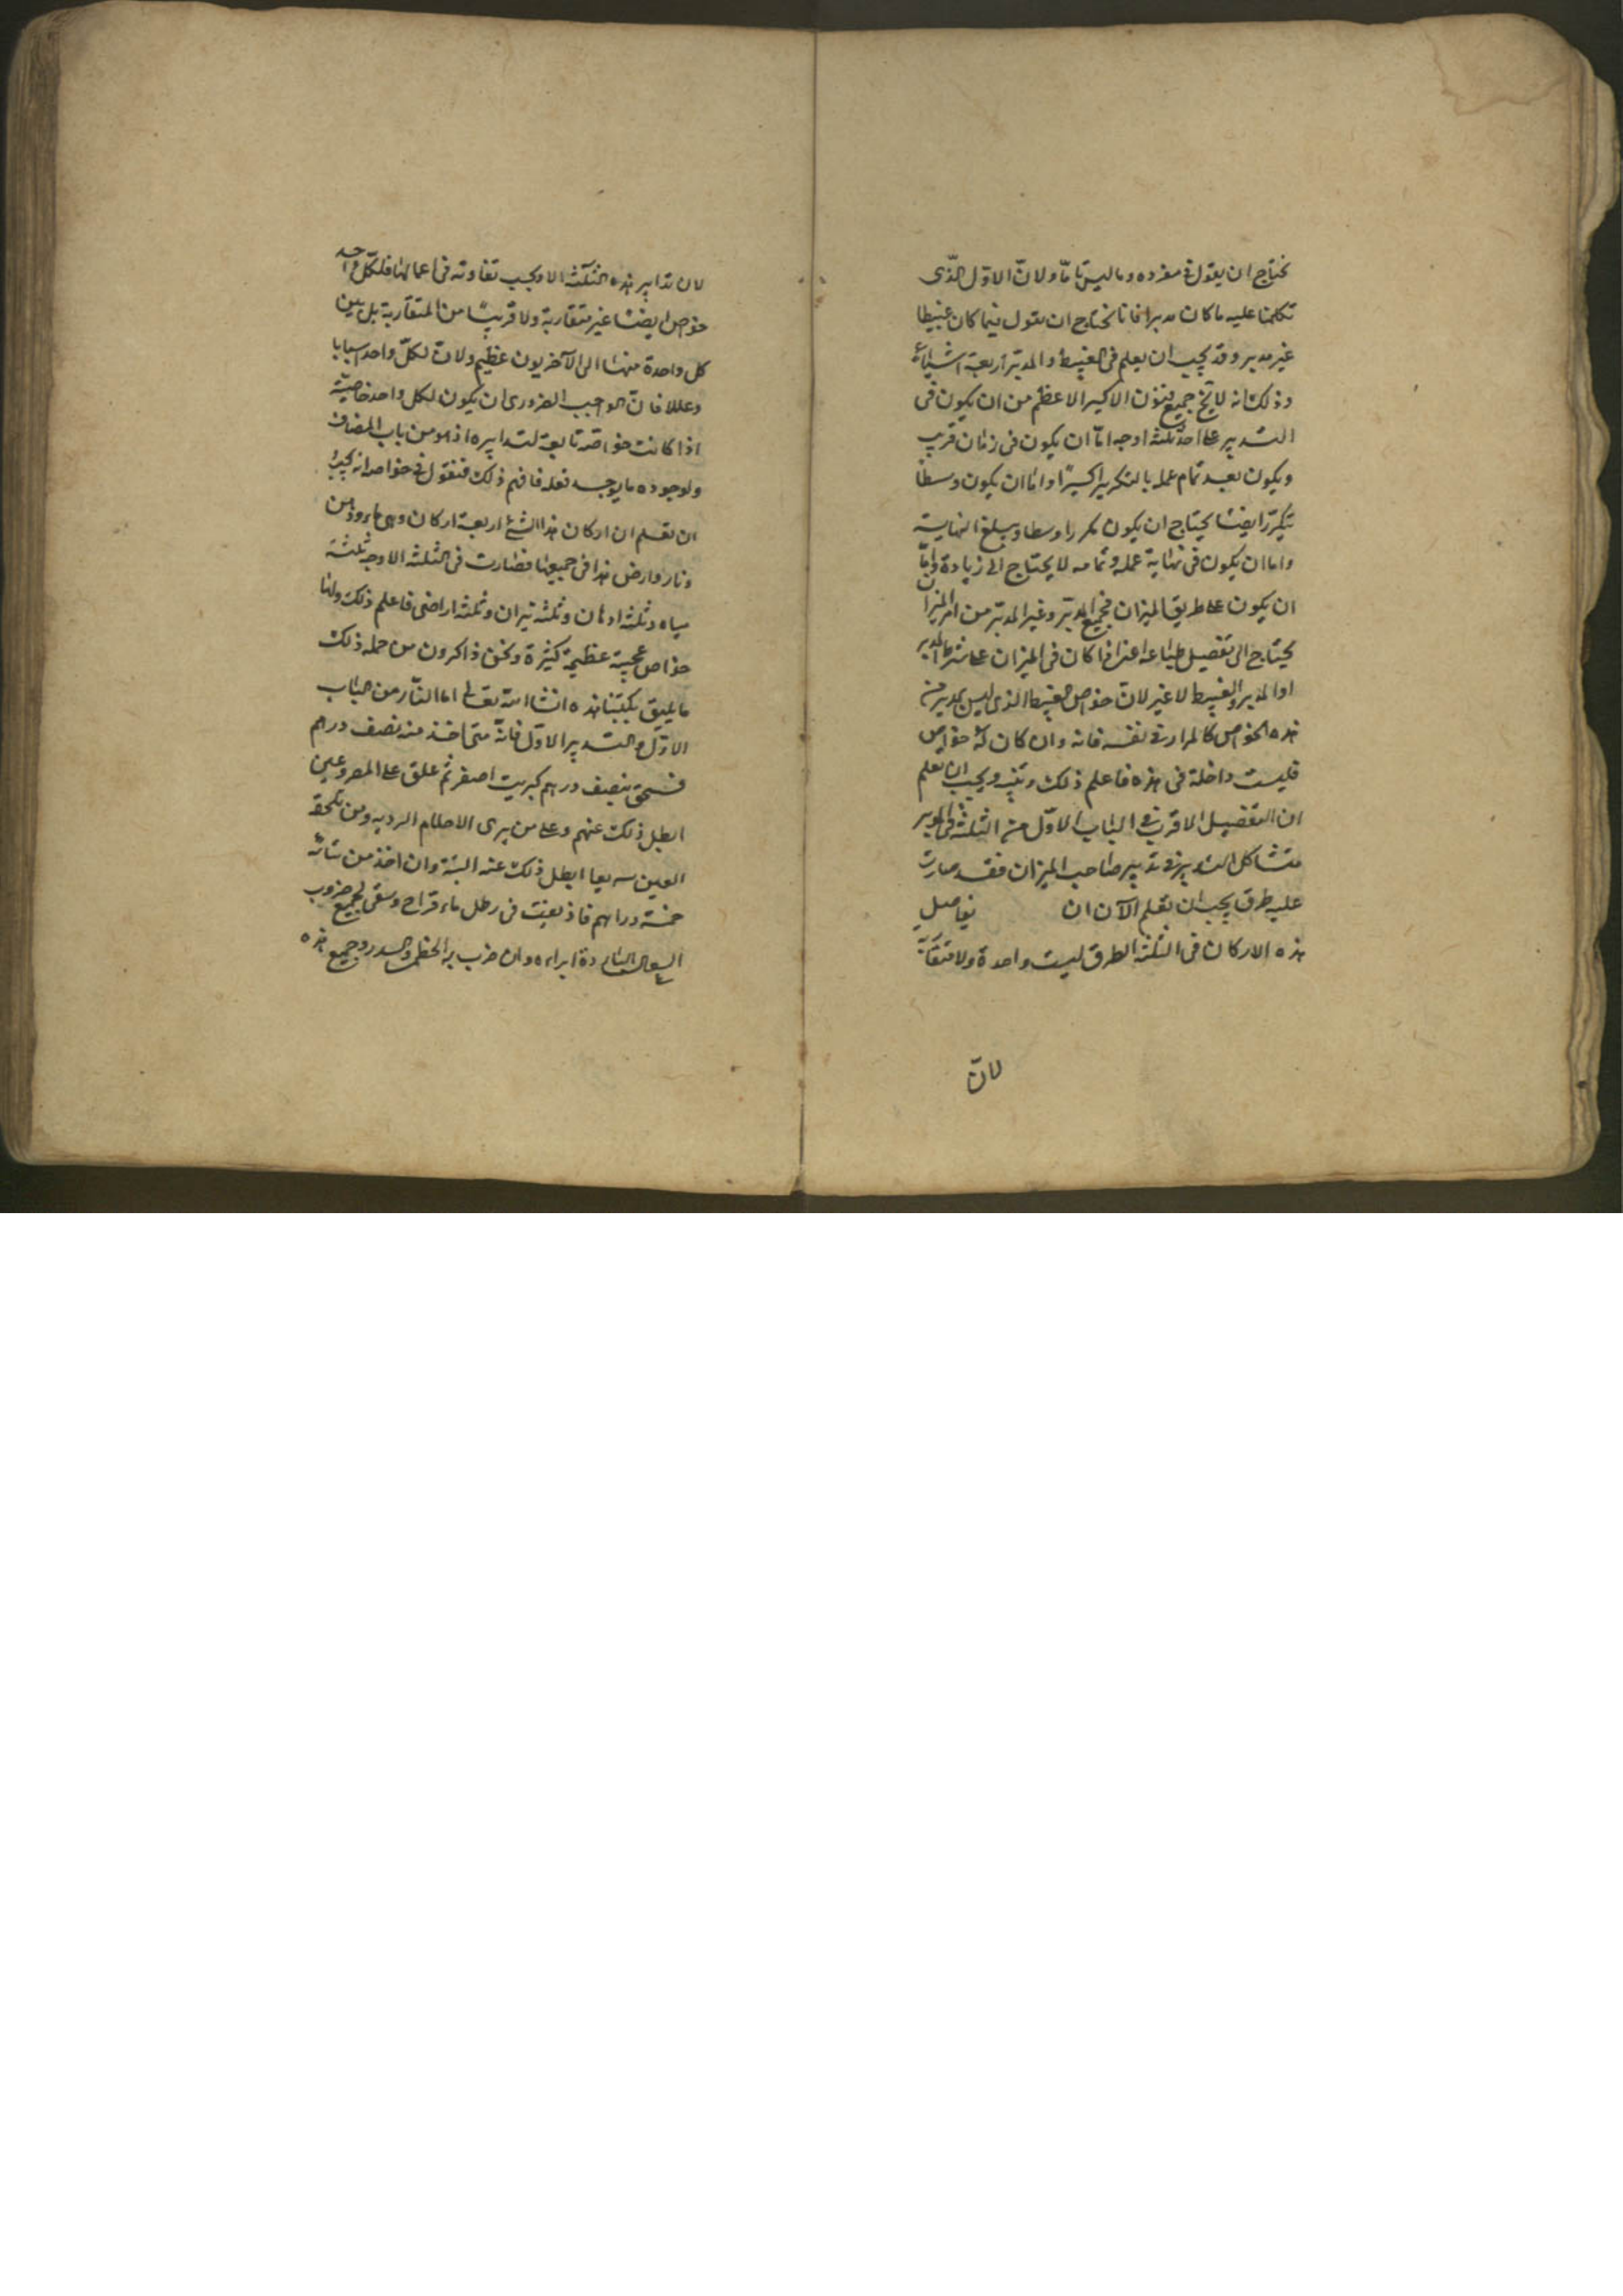 نحتاج ان يقول فى مفرده وما ليس تامّا ولانّ الاوّل الذّى
تكلمنا عليه ما كان مدبرا فانا نحتاج ان نقول فيما كان عبيطا
غير مدبر وقد يجب ان يعلم فى العبيط والمدبّر اربعة اشياء
وذلك انه لا يخ جميع فنون الاكسير الاعظم من ان يكون فى
التدبير على احد ثلثة اوجه امّا ان يكون فى زمان قريب
ويكون بعد تمام عمله بالتكرير اكسيرًا واما ان يكون وسطا
يتكرّر ايضا يحتاج ان يكون مكررا وسطا ويبلغ النهاية
واما ان يكون فى نهاية عمله وتمامه لا يحتاج الى زيادة وامّا
ان يكون على طريق الميزان فجميع المدبّر وغير المدبّر من امر الميزان
يحتاج الى تفصيل طباعه اعنى اذا كان فى الميزان على شرط المدبر
او المدبر والعبيط لا غير لانّ خواص العبيط الذى ليس بمدبر من
هذه الخواص كالمرار فى نفسه فانه وان كان له خواص
فليست داخلة فى هذه فاعلم ذلك وتبينه ويجب ان تعلم
ان التفصيل الاقرب فى الباب الاوّل من الثلثة فى
متشاكل التدبير فى تدبير صاحب الميزان فقد صارت
عليه طرق يجب ان تعلم الآن ان تفاصيل
هذه الاركان فى الثلثة الطرق ليست واحدة ولا متقاربة
لانّ
لان تدابير هذه الثلثة الاوجب تفاوته فى اعمالها فلكلّ واحد
خواص ايضا غير متقاربة ولا قريبًا من المتقاربة بل بين
كل واحدة منها الى الآخر بون عظيم ولانّ لكلّ واحد اسبابا
وعللا فانّ الواجب الضرورى ان يكون لكل واحد خاصيّة
اذا كانت خواصّه تابعة لتدابيره اذ هو من باب المضاف
ولوجوده ما يوجب فعله فافهم ذلك فنقول فى خواصه انه يجب
ان تعلم ان اركان هذا الشئ اربعة اركان وهى ماء ودهن
ونار وارض هذا فى جميعها فصارت فى الثلثة الاوجه ثلثة
مياه وثلثة ادهان وثلثة نيران وثلثة اراضى فاعلم ذلك ولها
خواص عجيبة عظيمة كثيرة ونحن ذاكرون من جملة ذلك
ما يليق بكتبنا هذه انشا الله تعالى اما النّار من الباب
الاوّل والتدبير الاوّل فانّه متى اخذ منه نصف درهم
فسحق بنصف درهم كبريت اصفر ثم علق على المصروعين
ابطل ذلك عنهم وعلى من يرى الاحلام الردية ومن تلحقه
العين سريعا ابطل ذلك عنه البتة وان اخذ من مائه
خمسة دراهم فاذيفت فى رطل ماء قراح وسقى لجميع ضروب
السعال دة ابراءه وان ضرب به الخطمى والسدر وجميع هذه